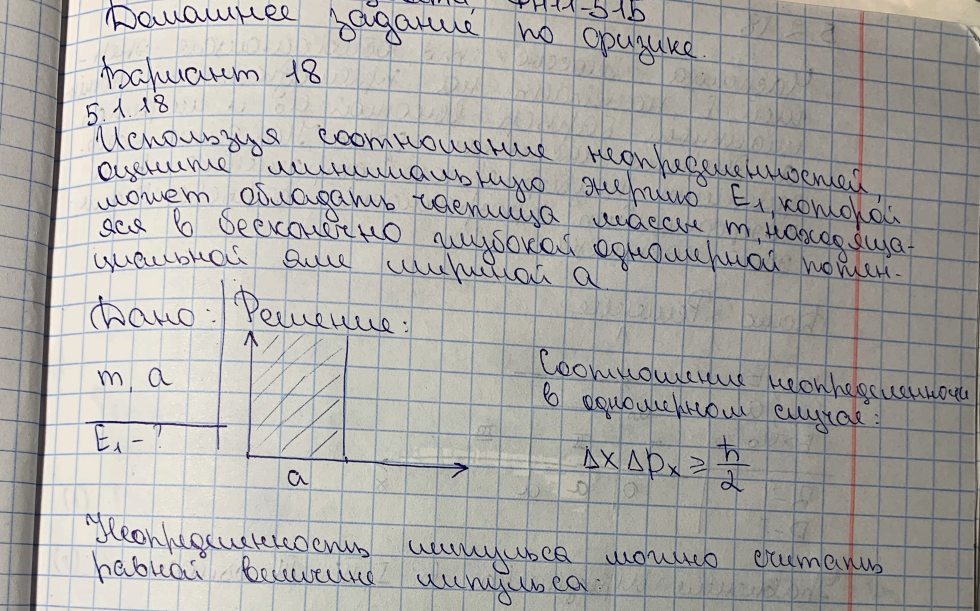 ФН11-51Б
Домашнее задание по физике.
Вариант 18
5.1.18
Используя соотношение неопределенностей
оцените минимальную энергию E₁, которой
может обладать частица массы m, находяща-
яся в бесконечно глубокой одномерной потен-
циальной яме шириной a.
Дано: Решение:
m, a
E₁ - ?
a
Соотношение неопределенности
в одномерном случае:
Δx Δpₓ ≥ ħ/2
Неопределенность импульса можно считать
равной величине импульса: